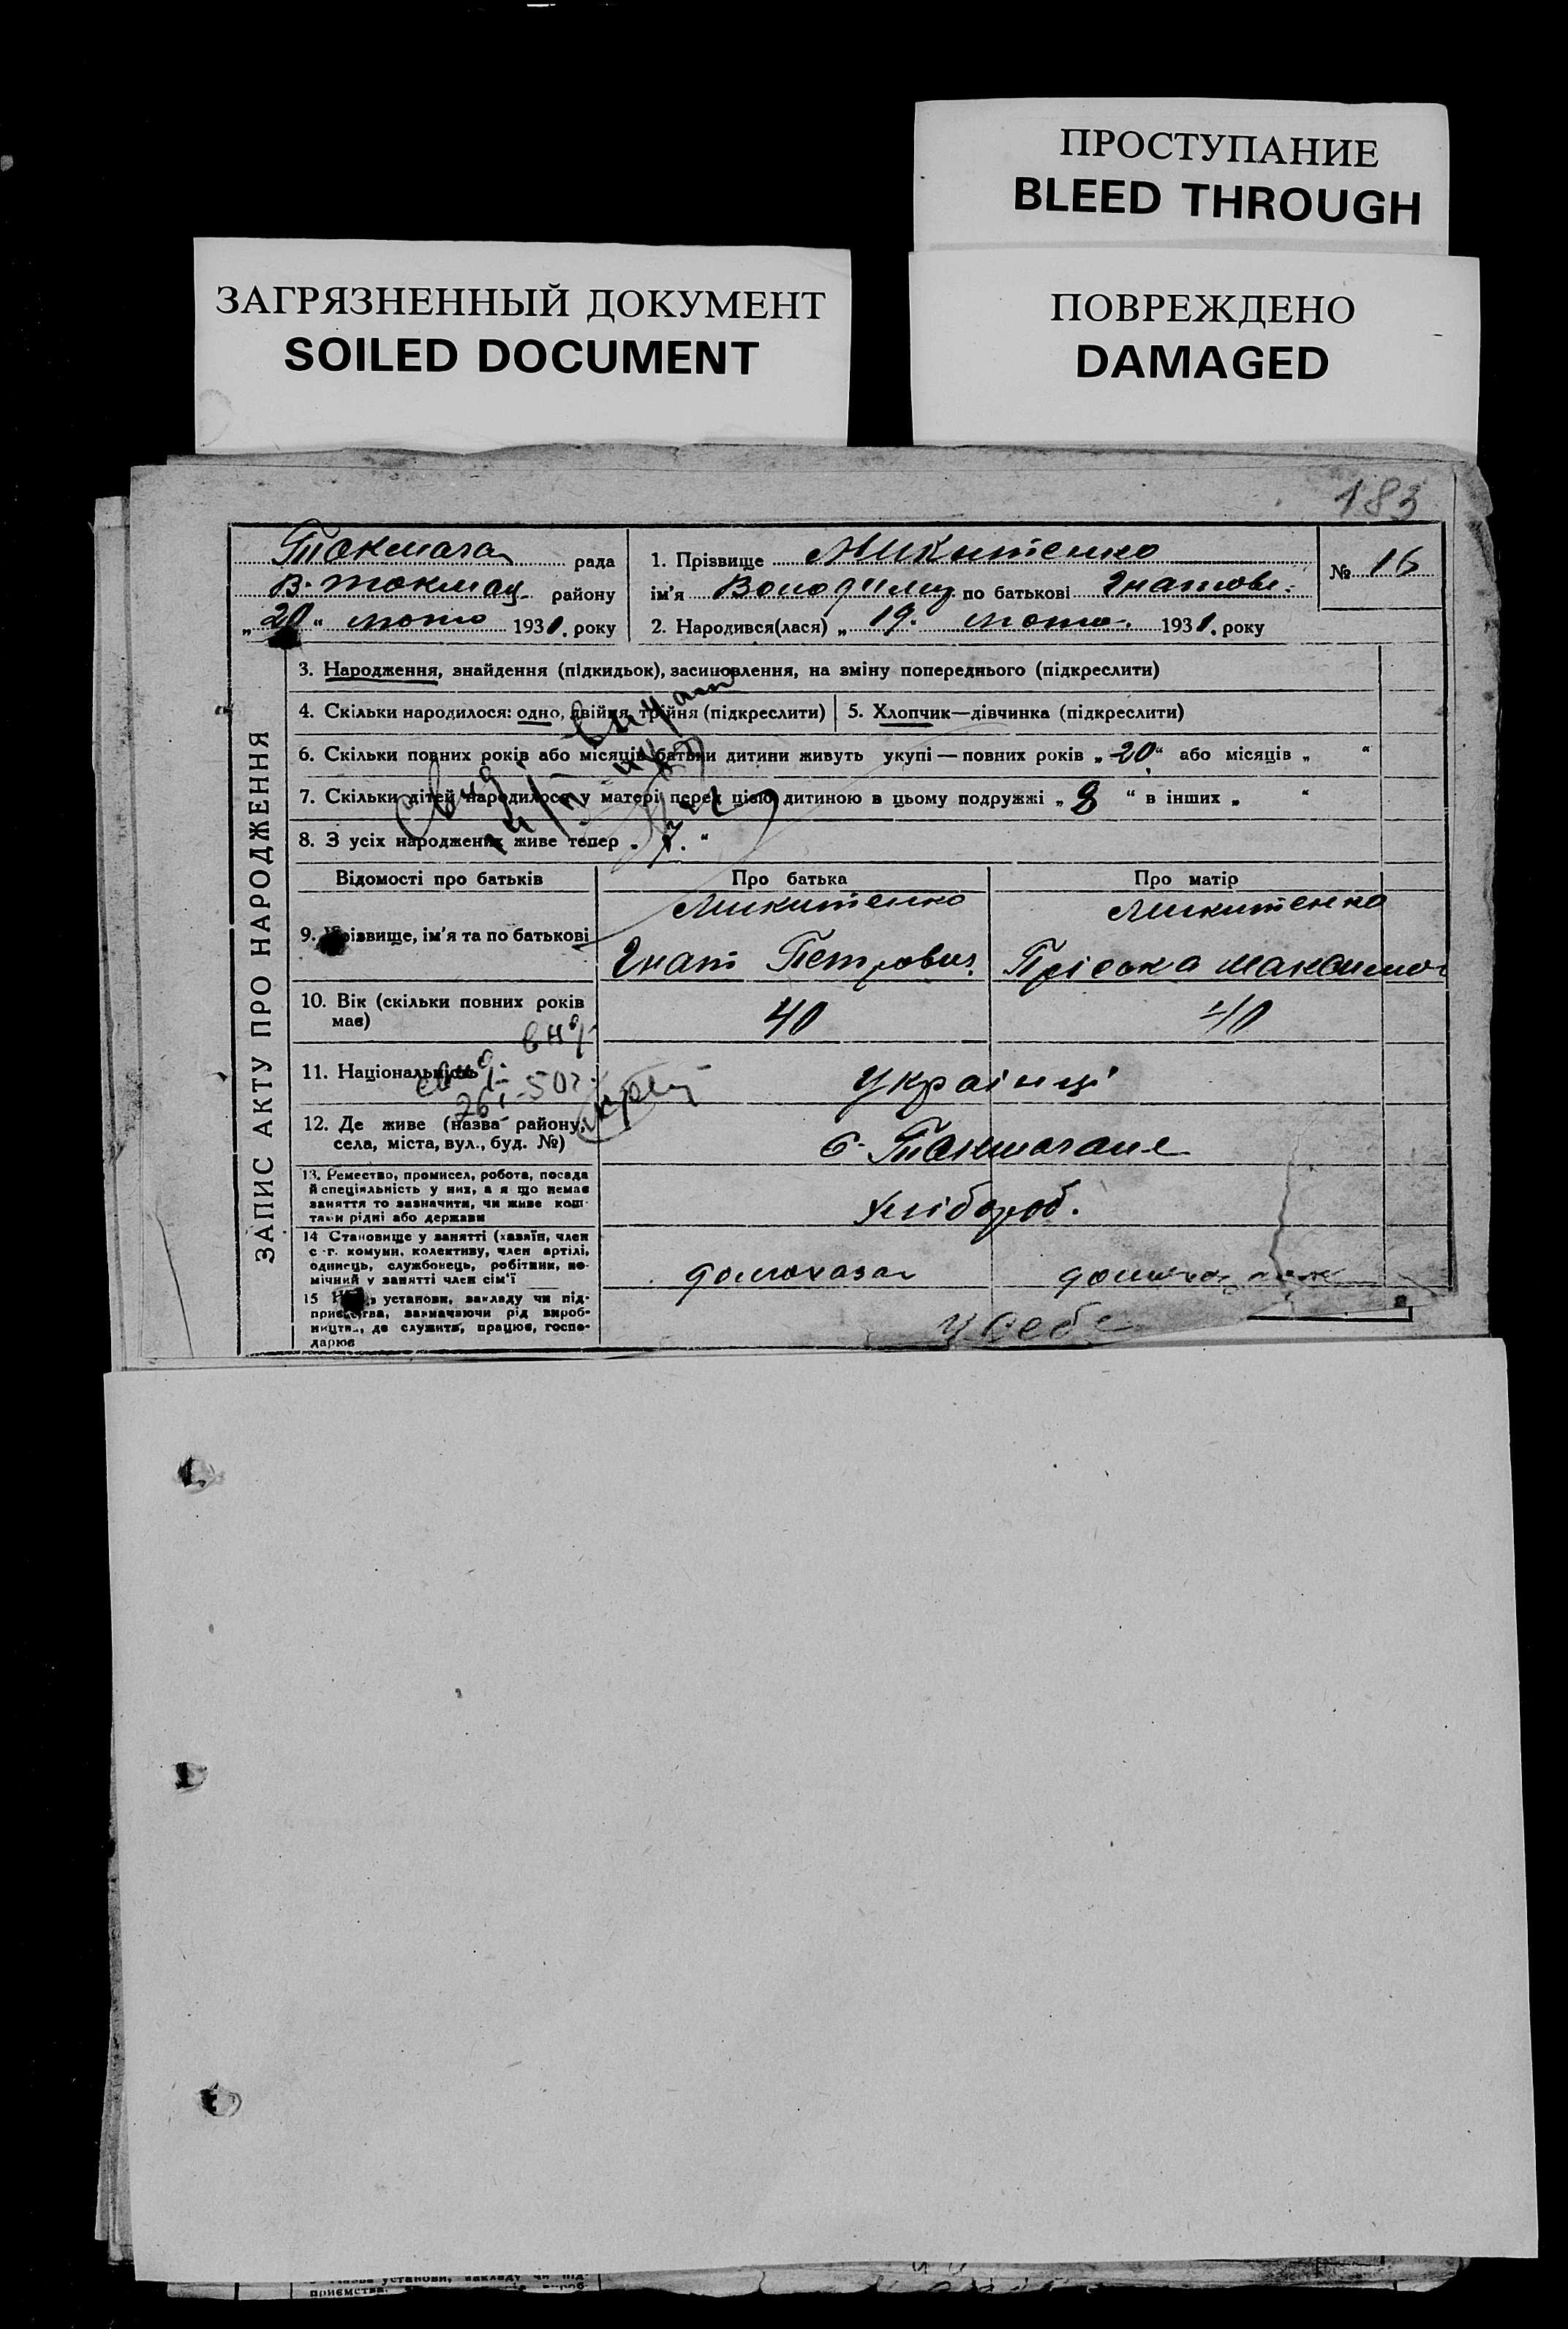 ПРОСТУПАНИЕ
BLEED THROUGH
ЗАГРЯЗНЕННЫЙ ДОКУМЕНТ
SOILED DOCUMENT
ПОВРЕЖДЕНО
DAMAGED
183
рада
В. Токмац. району
„20“ лютого 1931. року
1. Прізвище Микитенко
ім'я Володимир по батькові Гнатов.
2. Народився(лася) „19. лютого 1931. року
№ 16
ЗАПИС АКТУ ПРО НАРОДЖЕННЯ
3. Народження, знайдення (підкидьок), засиновлення, на зміну попереднього (підкреслити)
4. Скільки народилося: одно, двійня, трійня (підкреслити) 5. Хлопчик—дівчинка (підкреслити)
6. Скільки повних років або місяців батьки дитини живуть укупі — повних років „20“ або місяців „ “
7. Скільки дітей народилося у матері перед цією дитиною в цьому подружжі „8“ в інших „ “
8. З усіх народжених живе тепер „7.“
Відомості про батьків Про батька Про матір
9. Прізвище, ім'я та по батькові
Микитенко Микитенко
Гнат Петрович Пріська Максимов
10. Вік (скільки повних років
має)
40 40
11. Національність
Українці
12. Де живе (назва району,
села, міста, вул., буд. №)
13. Ремество, промисел, робота, посада
й спеціяльність у них, а я що немає
заняття то зазначити, чи живе кош-
тами рідні або держави
Хлібороб.
14 Становище у занятті (хазяїн, член
с.-г. комуни, колективу, член артілі,
одинець, службовець, робітник, по-
мічний у занятті член сім'ї
домохазя
15 установи, закладу чи під-
приємства, зазначаючи рід вироб-
ництва, де служить, працює, госпо-
дарює
У себе
установи, закладу чи під-
приємства,